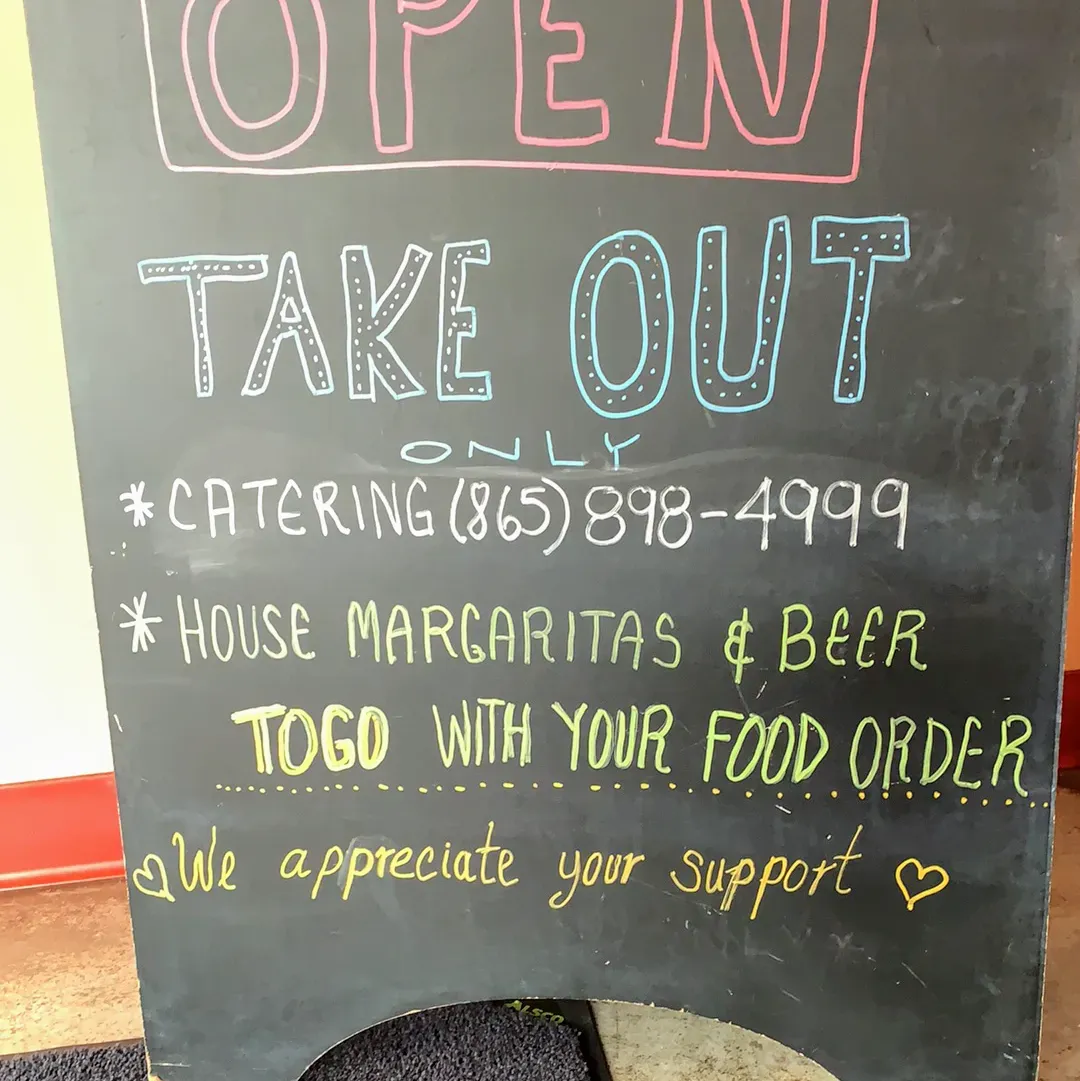 OPEN
TAKE OUT
ONLY
* CATERING (865) 898-4999
* HOUSE MARGARITAS & BEER
TOGO WITH YOUR FOOD ORDER
We appreciate your support
ALSCO